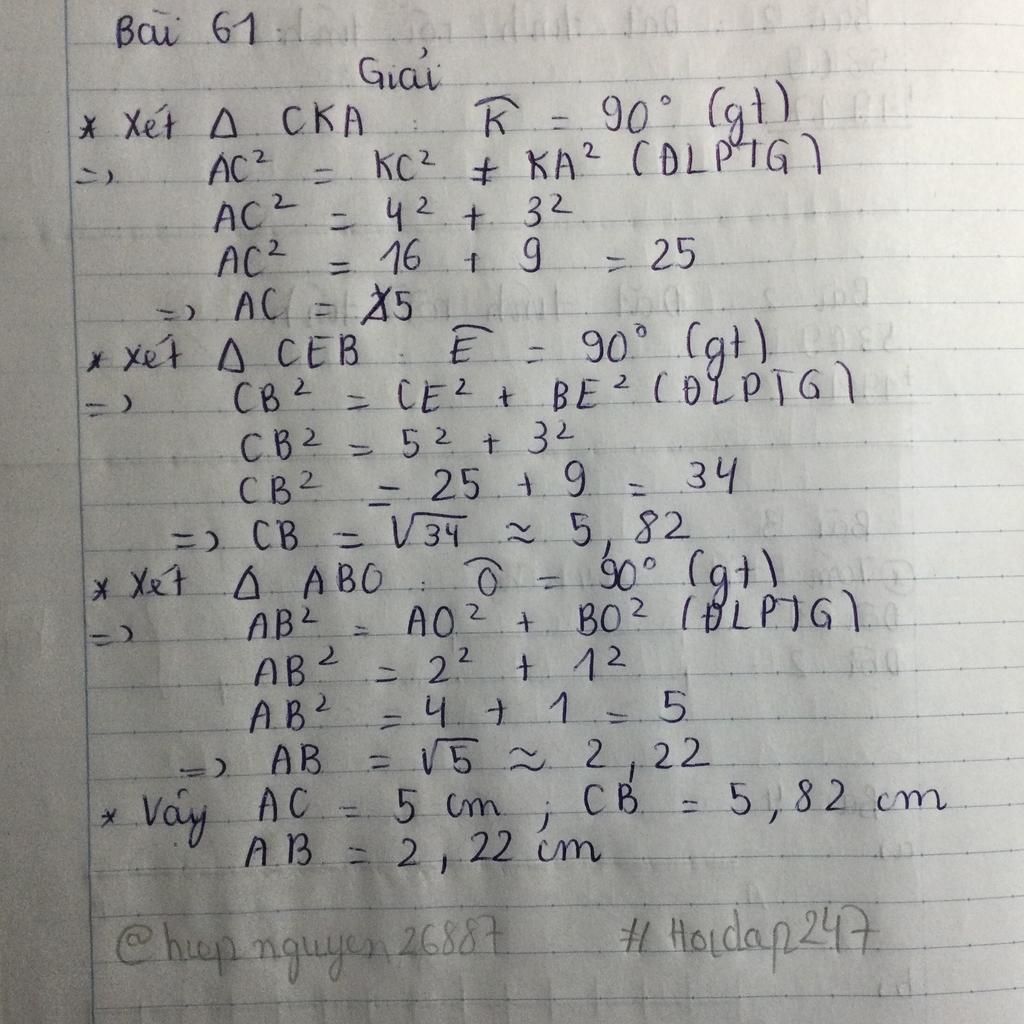 Bài 61
Giải
* Xét Δ CKA : K̂ = 90° (gt)
=> AC² = KC² + KA² (ĐLPTG)
AC² = 4² + 3²
AC² = 16 + 9 = 25
=> AC = 5
* Xét Δ CEB : Ê = 90° (gt)
=> CB² = CE² + BE² (ĐLPTG)
CB² = 5² + 3²
CB² = 25 + 9 = 34
=> CB = √34 ≈ 5,82
* Xét Δ ABO : Ô = 90° (gt)
=> AB² = AO² + BO² (ĐLPTG)
AB² = 2² + 1²
AB² = 4 + 1 = 5
=> AB = √5 ≈ 2,22
* Vậy AC = 5 cm ; CB = 5,82 cm
AB = 2,22 cm
@hiepnguyen26887 # Hoidap247